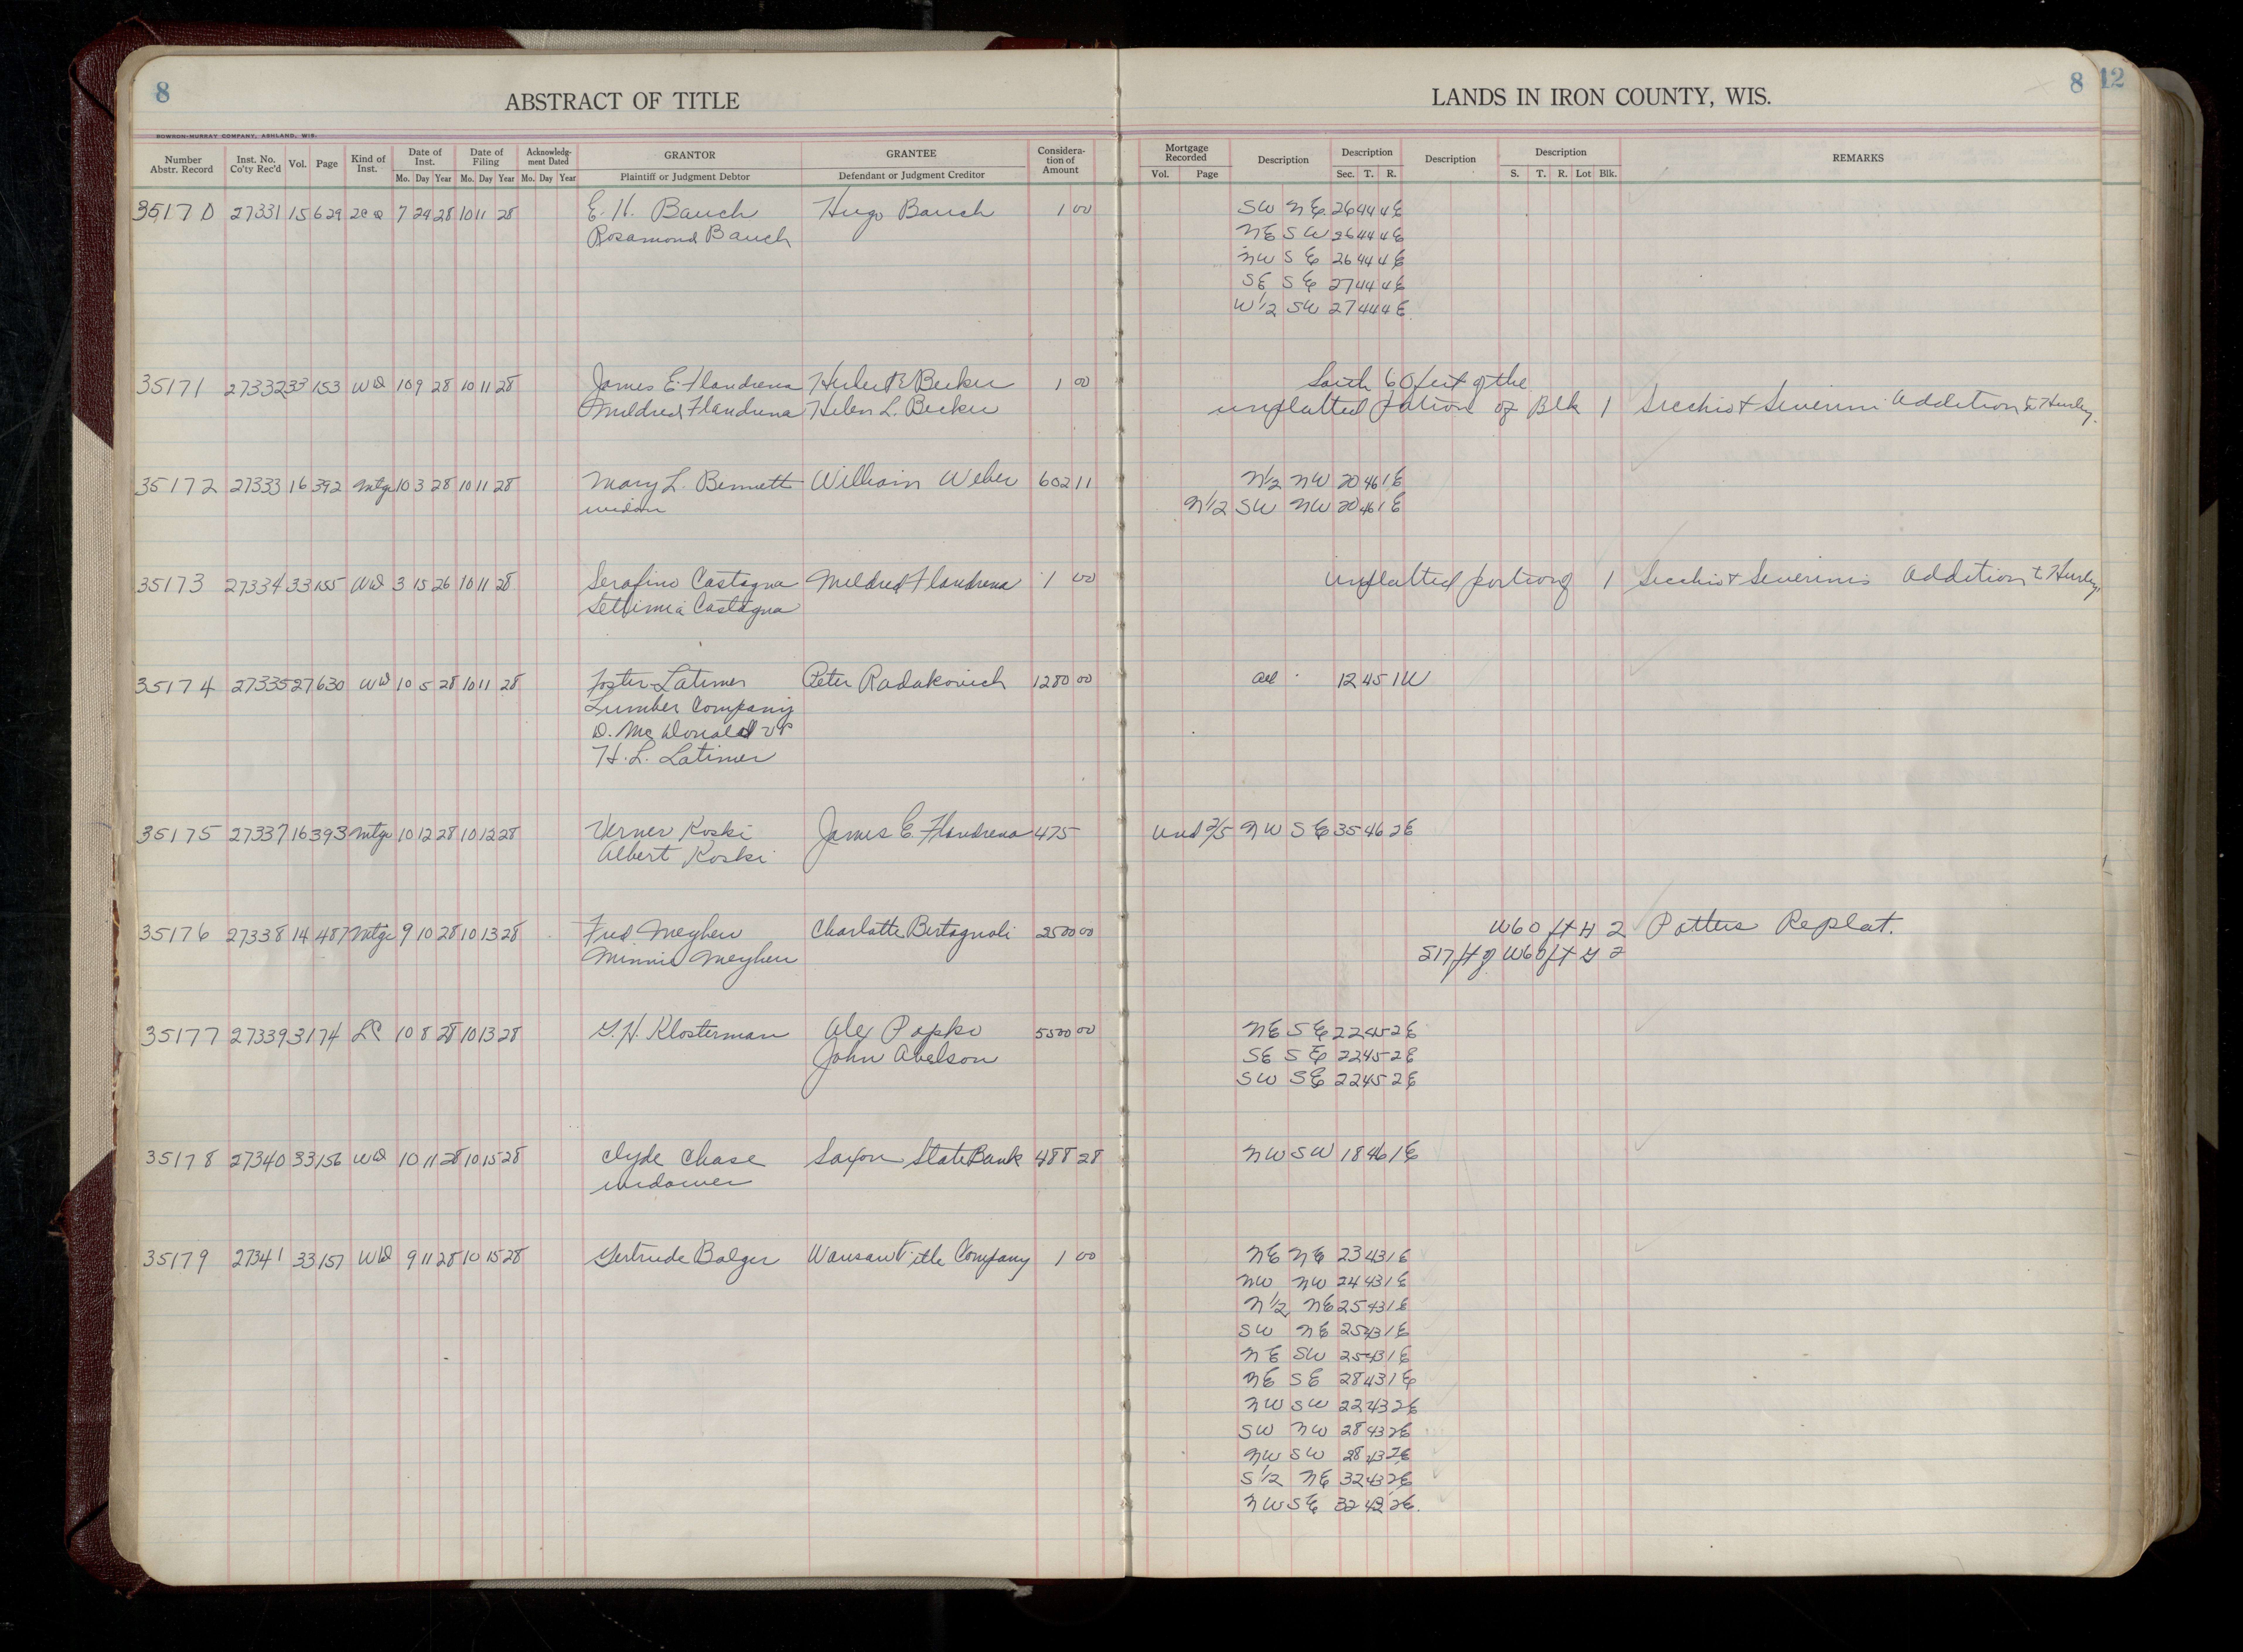 8
ABSTRACT OF TITLE
LANDS IN IRON COUNTY, WIS.
8
12
BOWRON-MURRAY COMPANY, ASHLAND, WIS.
Number Abstr. Record Inst. No. Co'ty Rec'd Vol. Page Kind of Inst. Date of Inst. Date of Filing Acknowledg-ment Dated GRANTOR GRANTEE Considera-tion of Amount Mortgage Recorded Description Description Description Description REMARKS
Mo. Day Year Mo. Day Year Mo. Day Year Plaintiff or Judgment Debtor Defendant or Judgment Creditor Vol. Page Sec. T. R. S. T. R. Lot Blk.
35170 27331 15 629 7 24 28 10 11 28 E. H. Bauch Hugo Bauch 1 00 SW NE 26 44 4E
Rosamond Bauch NE SW 26 44 4E
NW SE 26 44 4E
SE SE 27 44 4E
W 1/2 SW 27 44 4E
35171 27332 33 153 WD 10 9 28 10 11 28 James E. Flandrena Becker 1 00 South 60 feet of the
Mildred Flandrena Helen L. Becker unplatted potion of Blk 1 Secchis + Severini Addition to Hurley.
35172 27333 16 392 Mtge 10 3 28 10 11 28 Mary L. Bennett William Weber 602 11 N 1/2 NW 20 46 1E
widow N 1/2 SW NW 20 46 1E
35173 27334 33 155 WD 3 15 26 10 11 28 Serafino Castagna Mildred Flandrena 1 00 unplatted portion of 1 Secchis + Severinis Addition to Hurley.
Settimia Castagna
35174 27335 27 630 WD 10 5 28 10 11 28 Foster Latimer Peter Radakovich 1280 00 all 12 45 1W
Lumber Company
D. McDonald VP
H. L. Latimer
35175 27337 16 393 Mtge 10 12 28 10 12 28 Verner Koski James E. Flandrena 475 und 2/5 NW SE 35 46 2E
Albert Koski
35176 27338 14 487 Mtge 9 10 28 10 13 28 Fred Meyhew Charlotte Bertagnoli 2500 00 W 60 ft 2 Potters Replat.
Minnie Meyhew S 17 ft of W 60 ft 2
35177 27339 31 74 LC 10 8 28 10 13 28 G. H. Klosterman Alex Popko 5500 00 NE SE 22 45 2E
John Abelson SE SE 22 45 2E
SW SE 22 45 2E
35178 27340 33 156 WD 10 11 28 10 15 28 Clyde Chase Saxon State Bank 488 28 NW SW 18 46 1E
widower
35179 27341 33 157 WD 9 11 28 10 15 28 Gertrude Balger Wausau Title Company 1 00 NE NE 23 43 1E
NW NW 24 43 1E
N 1/2 NE 25 43 1E
SW NE 25 43 1E
NE SW 25 43 1E
NE SE 28 43 1E
NW SW 22 43 2E
SW NW 28 43 2E
NW SW 28 43 2E
S 1/2 NE 32 43 2E
NW SE 32 43 2E.